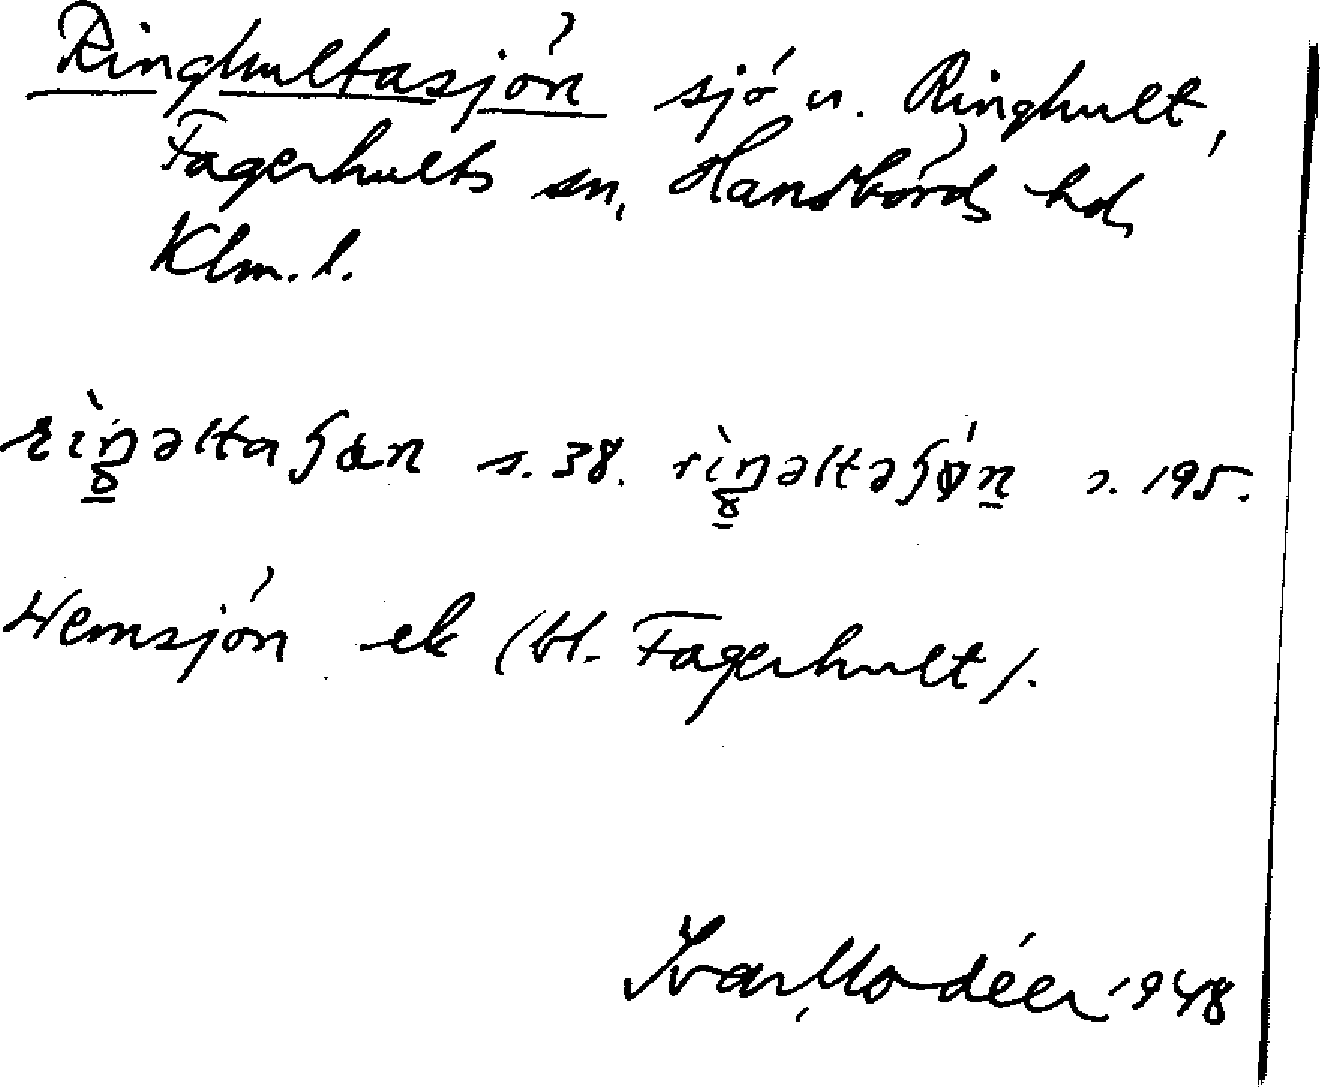 Ringhultasjön sjö v. Ringhult,
Fagerhults sn, Handbörds hd,
Klm. l.
s. 38. s. 195.
Wemsjön ek (bl. Fagerhult).
Ivar Modéer 1948